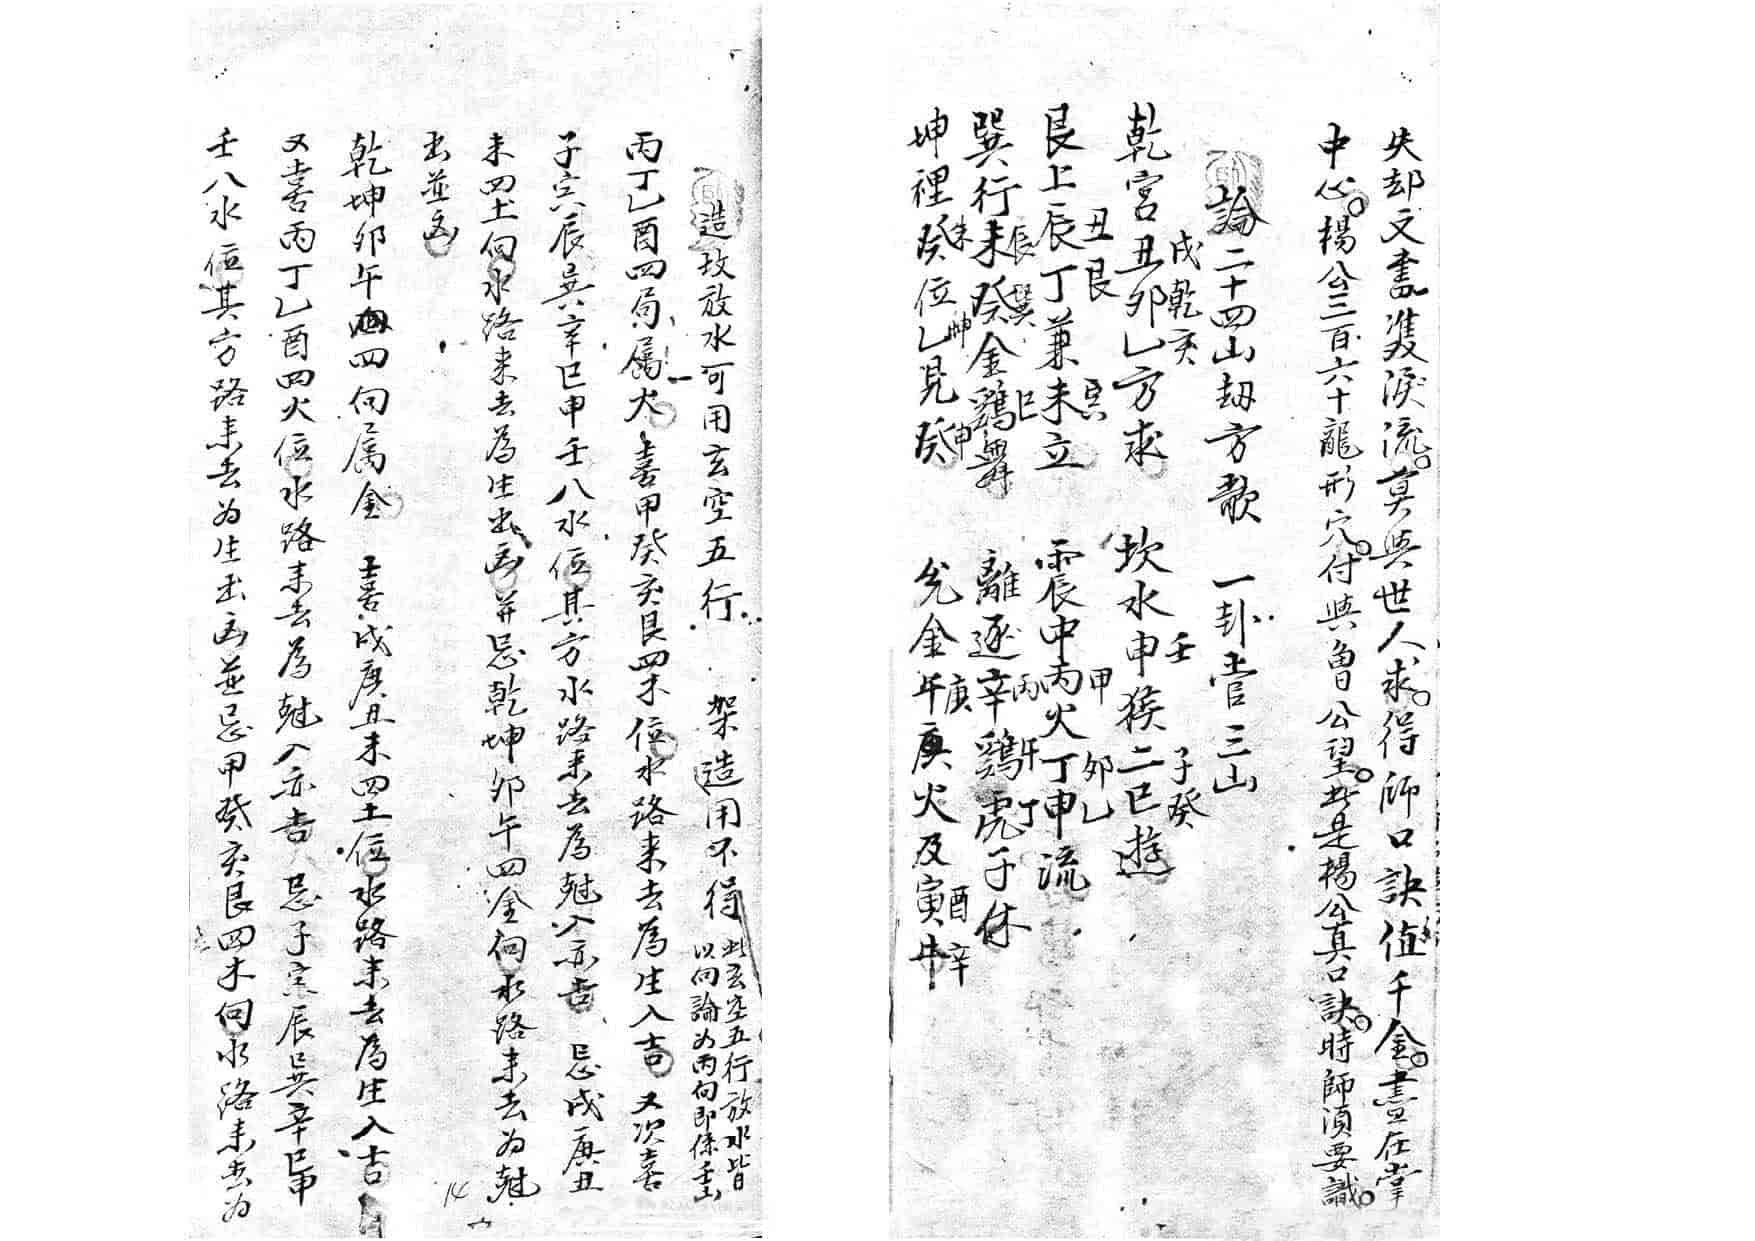 失却文書雙淚流。莫與世人求。得師口訣值千金。盡在掌
中心。楊公三百六十龍形穴。付與魯公望。此是楊公真口訣。時師須要識。
論二十四山劫方歌 一卦管三山
戌乾亥 壬 子癸
乾宮丑卯乙方求 坎水申猴二巳遊
丑艮寅 甲 卯乙
艮上辰丁兼未立 震中丙火丁申流
辰巽巳 丙午丁
巽行未癸金鷄舞 離逐辛鷄虎子休
未坤申 庚 酉辛
坤裡癸位乙見癸 兌金年庚火及寅牛
造坟放水可用玄空五行 架造用不得 此玄空五行放水皆
以向論为丙向即係壬山
丙丁乙酉四局属火 喜甲癸亥艮四木位水路来去為生入吉 又次喜
子宾辰巽辛巳申壬八水位其方水路来去為尅入亦吉 忌戌庚丑
未四土向水路来去為生出凶並忌乾坤卯午四金向水路来去为尅
出並凶
乾坤卯午四向属金 喜戌庚丑未四土位水路来去為生入吉
又喜丙丁乙酉四火位水路来去為尅入亦吉 忌子宗辰巽辛巳申
壬八水位其方路来去为生出凶並忌甲癸亥艮四木向水路来去为
14